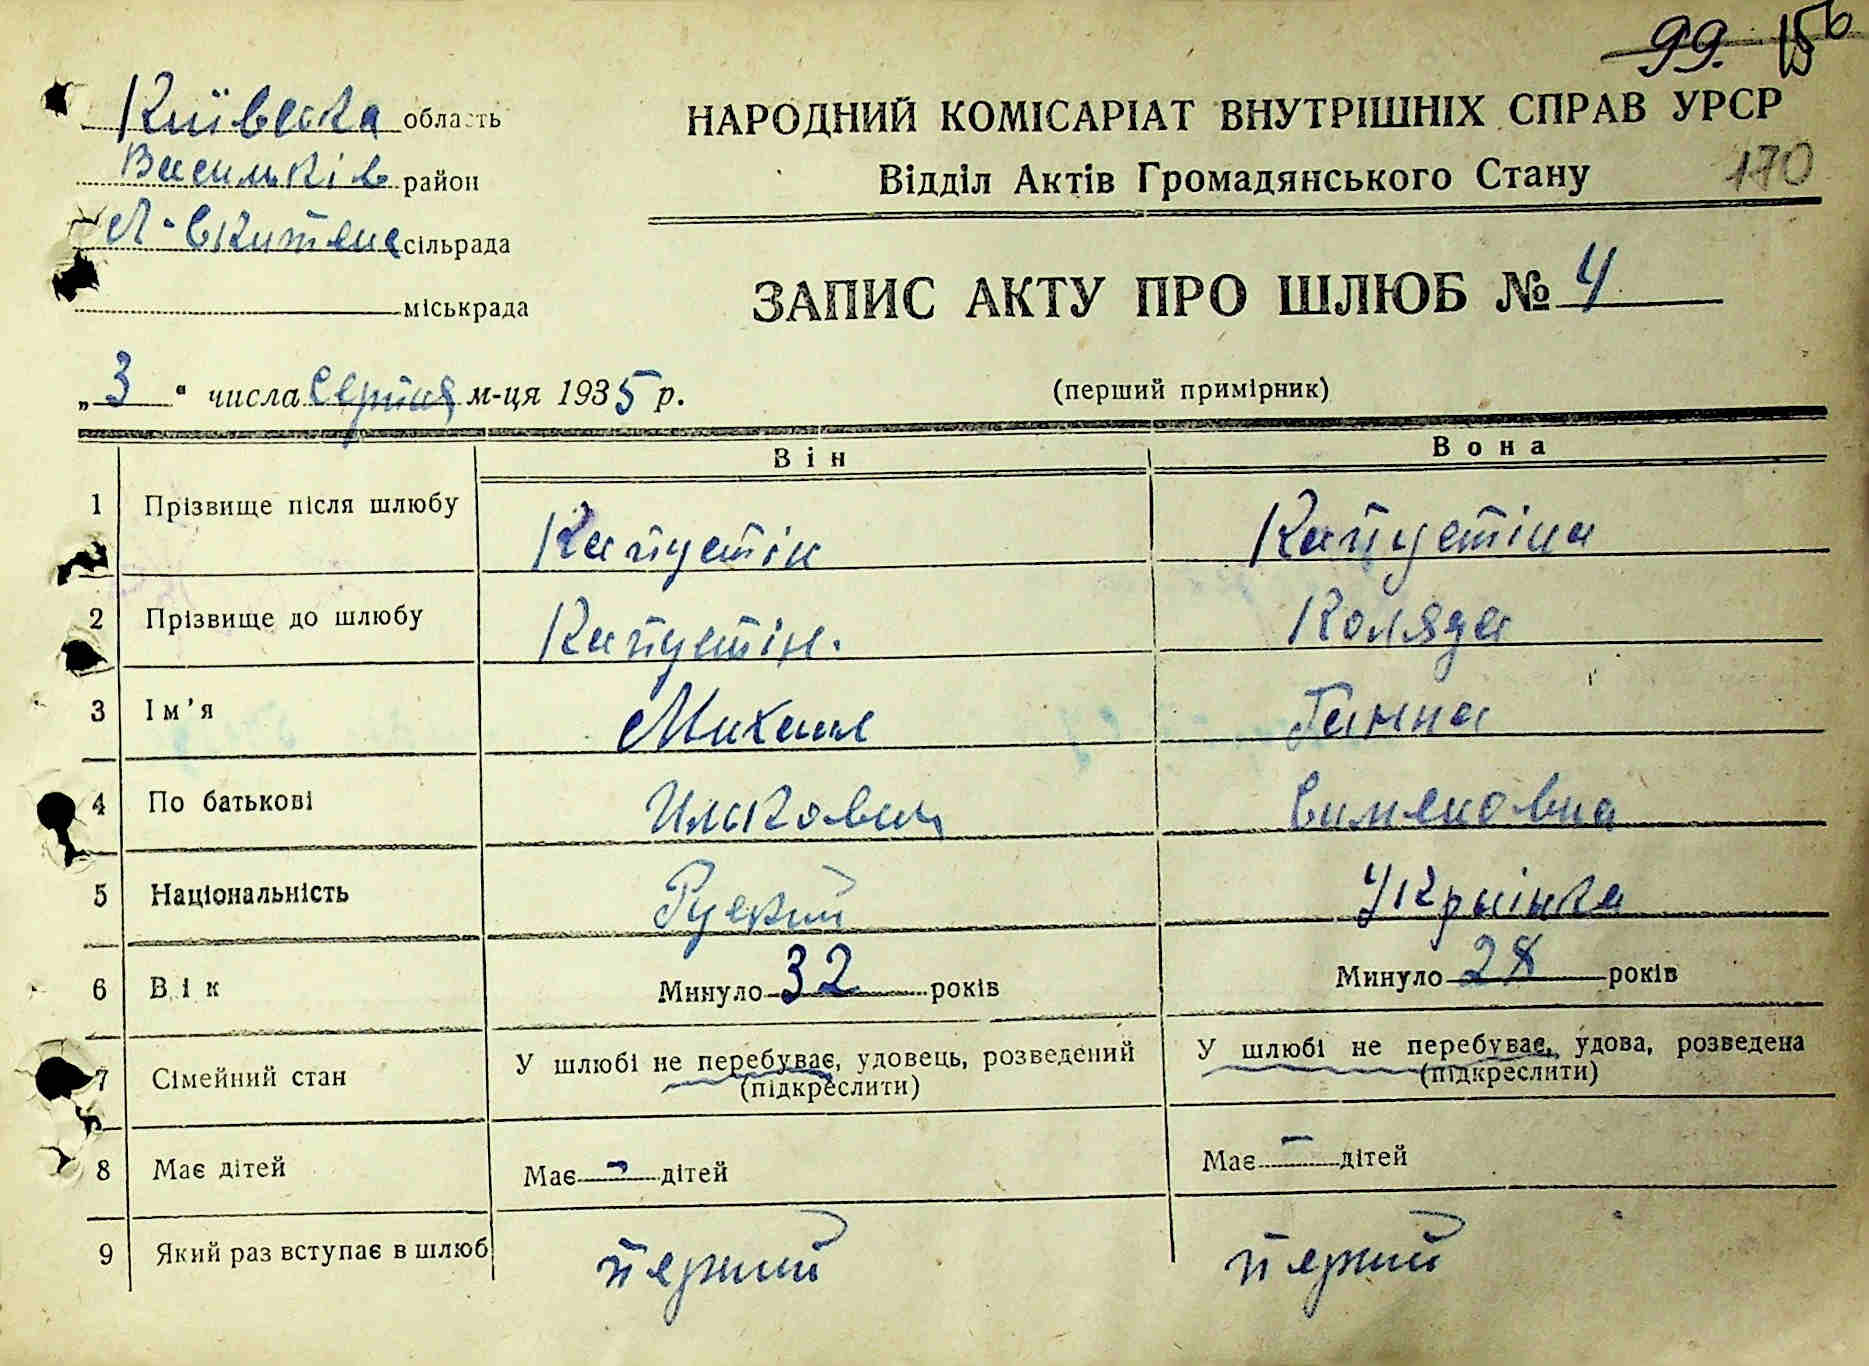 99. 156
Київська область
НАРОДНИЙ КОМІСАРІАТ ВНУТРІШНІХ СПРАВ УРСР
Васильків район
Відділ Актів Громадянського Стану 170
сільрада
міськрада
ЗАПИС АКТУ ПРО ШЛЮБ № 4
„3“ числа серпня м-ця 1935 р.
(перший примірник)
Він Вона
1 Прізвище після шлюбу Капустін Капустіна
2 Прізвище до шлюбу Капустін. Коляда
3 Ім'я Михаил Ганна
4 По батькові
5 Національність Руский Украінка
6 Вік Минуло 32 років Минуло 28 років
7 Сімейний стан У шлюбі не перебуває, удовець, розведений У шлюбі не перебуває, удова, розведена
(підкреслити) (підкреслити)
8 Має дітей Має - дітей Має - дітей
9 Який раз вступає в шлюб